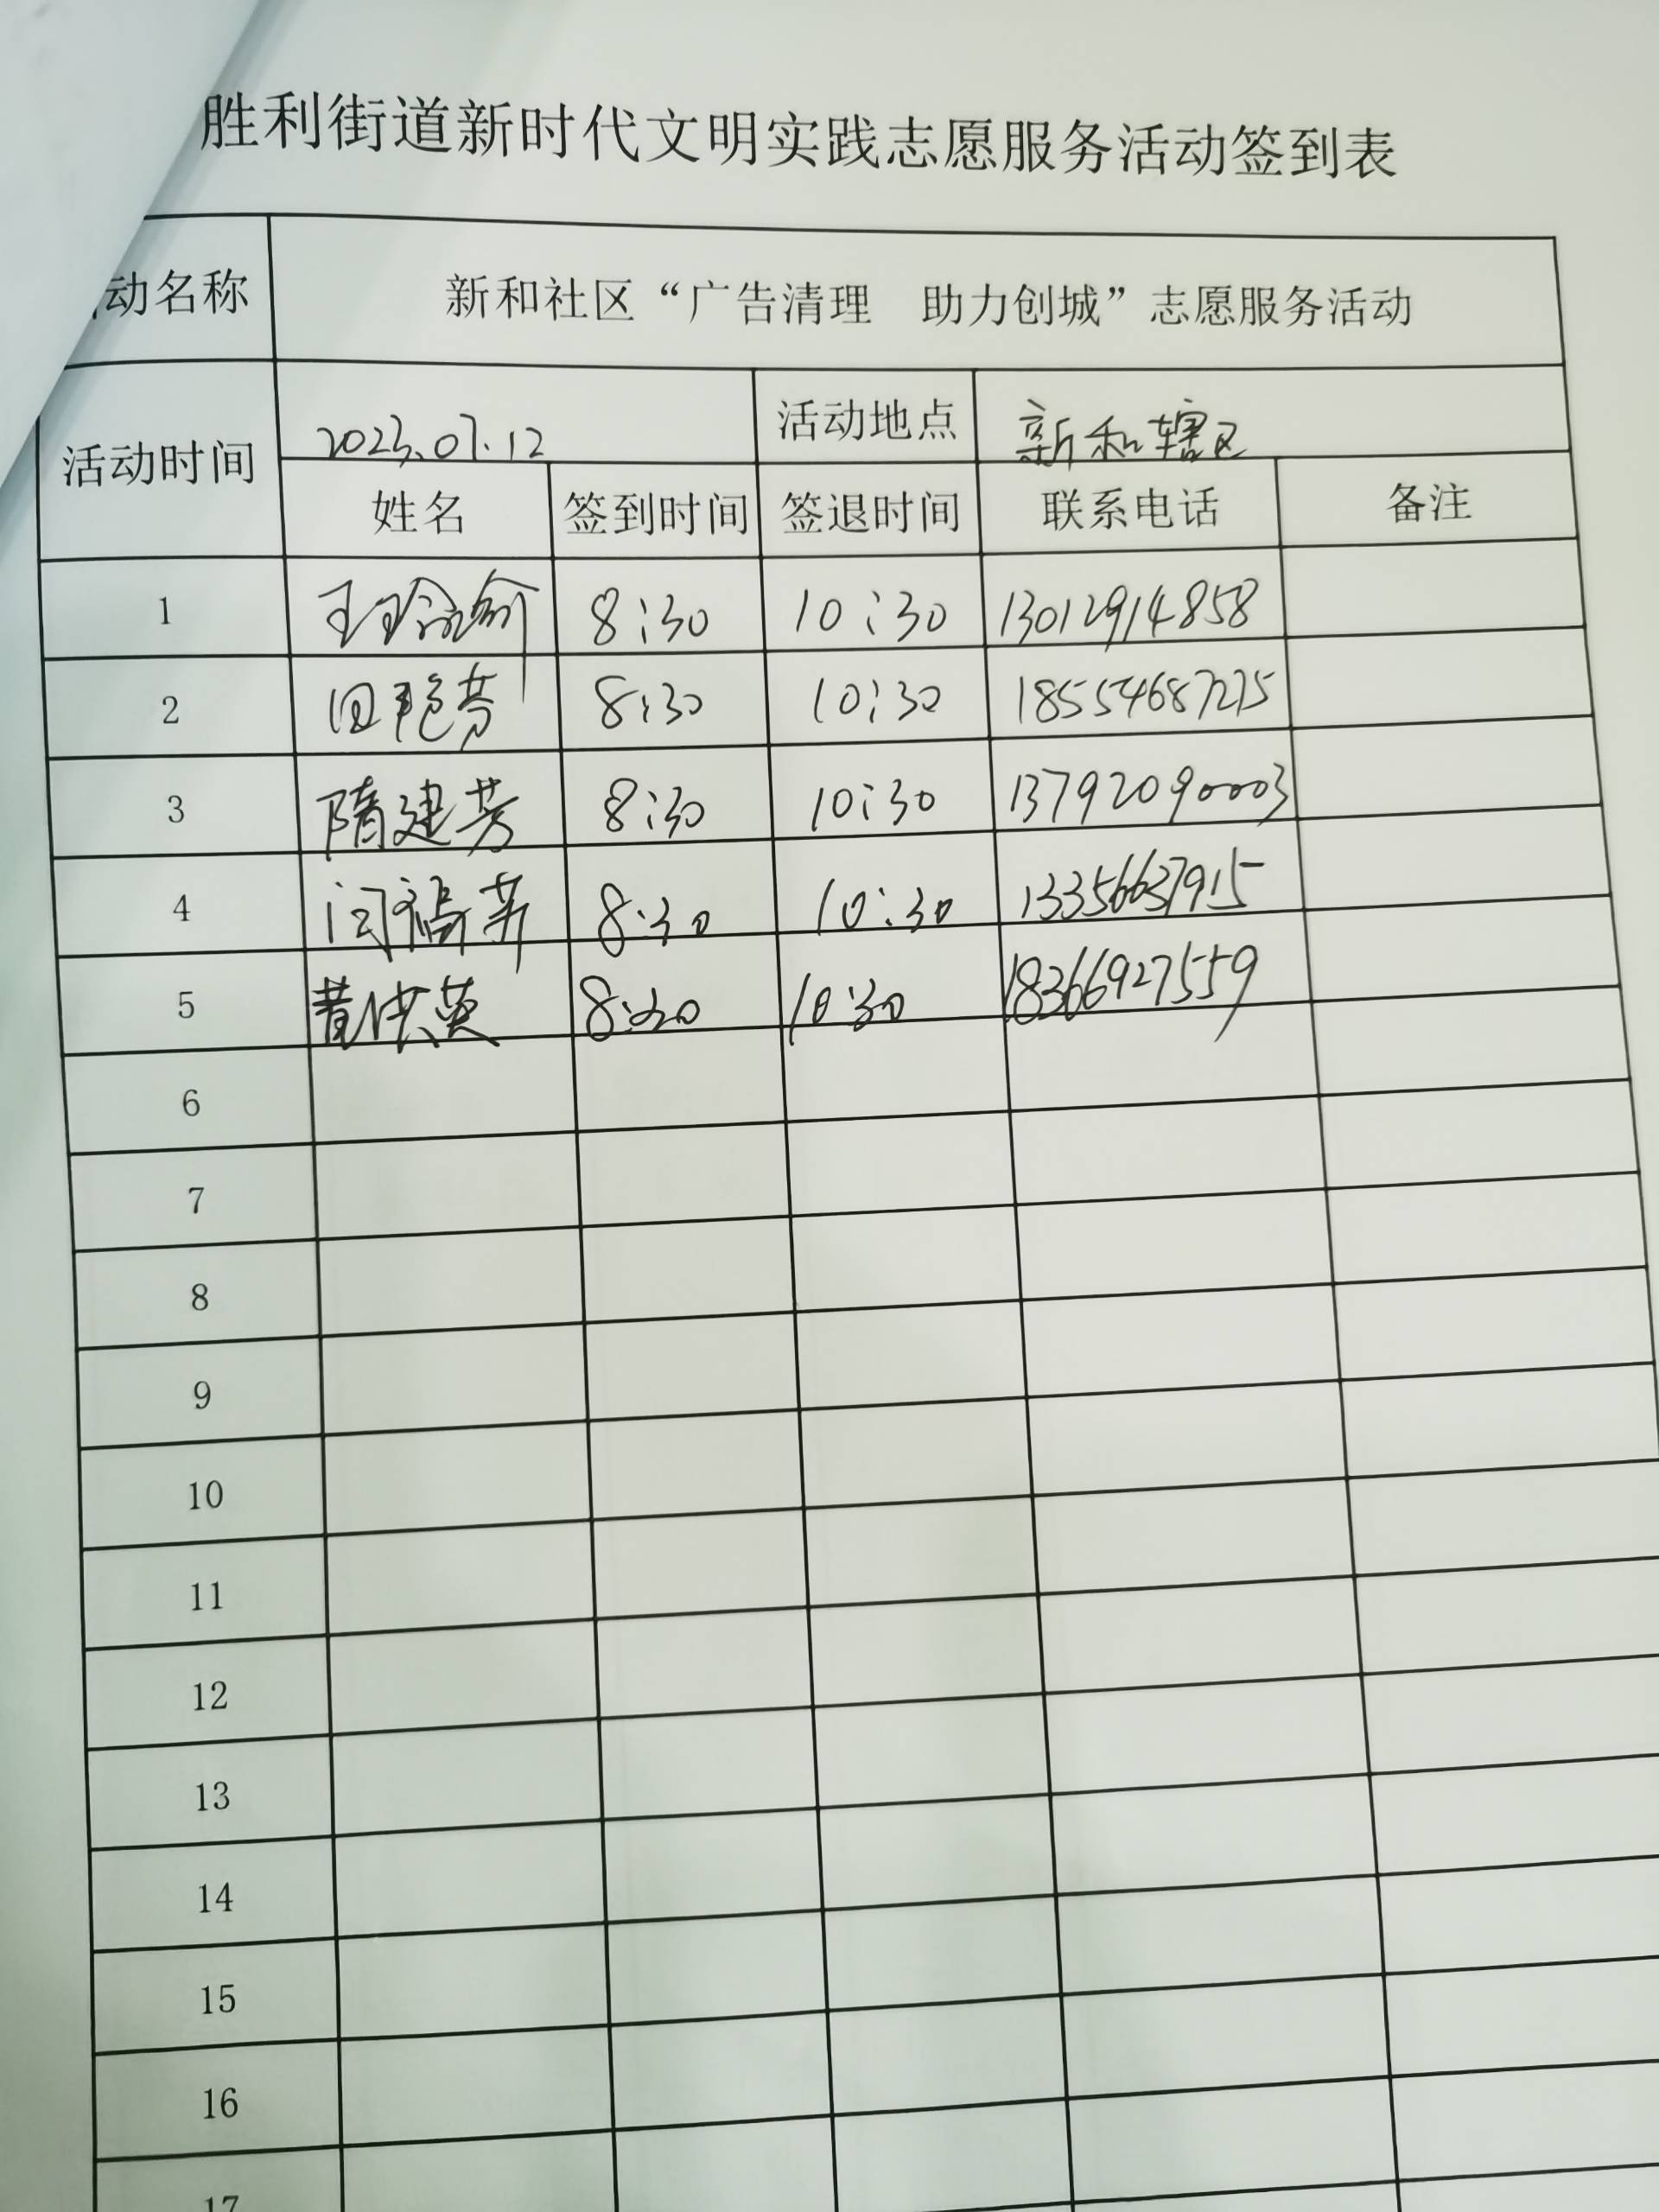 胜利街道新时代文明实践志愿服务活动签到表
动名称 新和社区“广告清理 助力创城”志愿服务活动
活动时间 2023.07.12 活动地点 新和辖区
姓名 签到时间 签退时间 联系电话 备注
1 8:30 10:30 13012914858
2 田艳芳 8:30 10:30 18554687275
3 隋建芳 8:30 10:30 13792090003
4 8:30 10:30 13356637915
5 黄洪英 8:30 10:30 18366927559
6
7
8
9
10
11
12
13
14
15
16
17